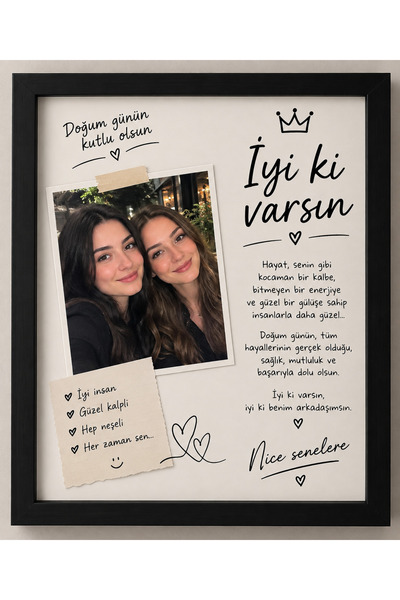 Doğum günün
kutlu olsun
İyi ki
varsın
Hayat, senin gibi
kocaman bir kalbe,
bitmeyen bir enerjiye
ve güzel bir gülüşe sahip
insanlarla daha güzel...
Doğum günün, tüm
hayallerinin gerçek olduğu,
sağlık, mutluluk ve
başarıyla dolu olsun.
İyi ki varsın,
iyi ki benim arkadaşımsın.
Nice senelere
İyi insan
Güzel kalpli
Hep neşeli
Her zaman sen...